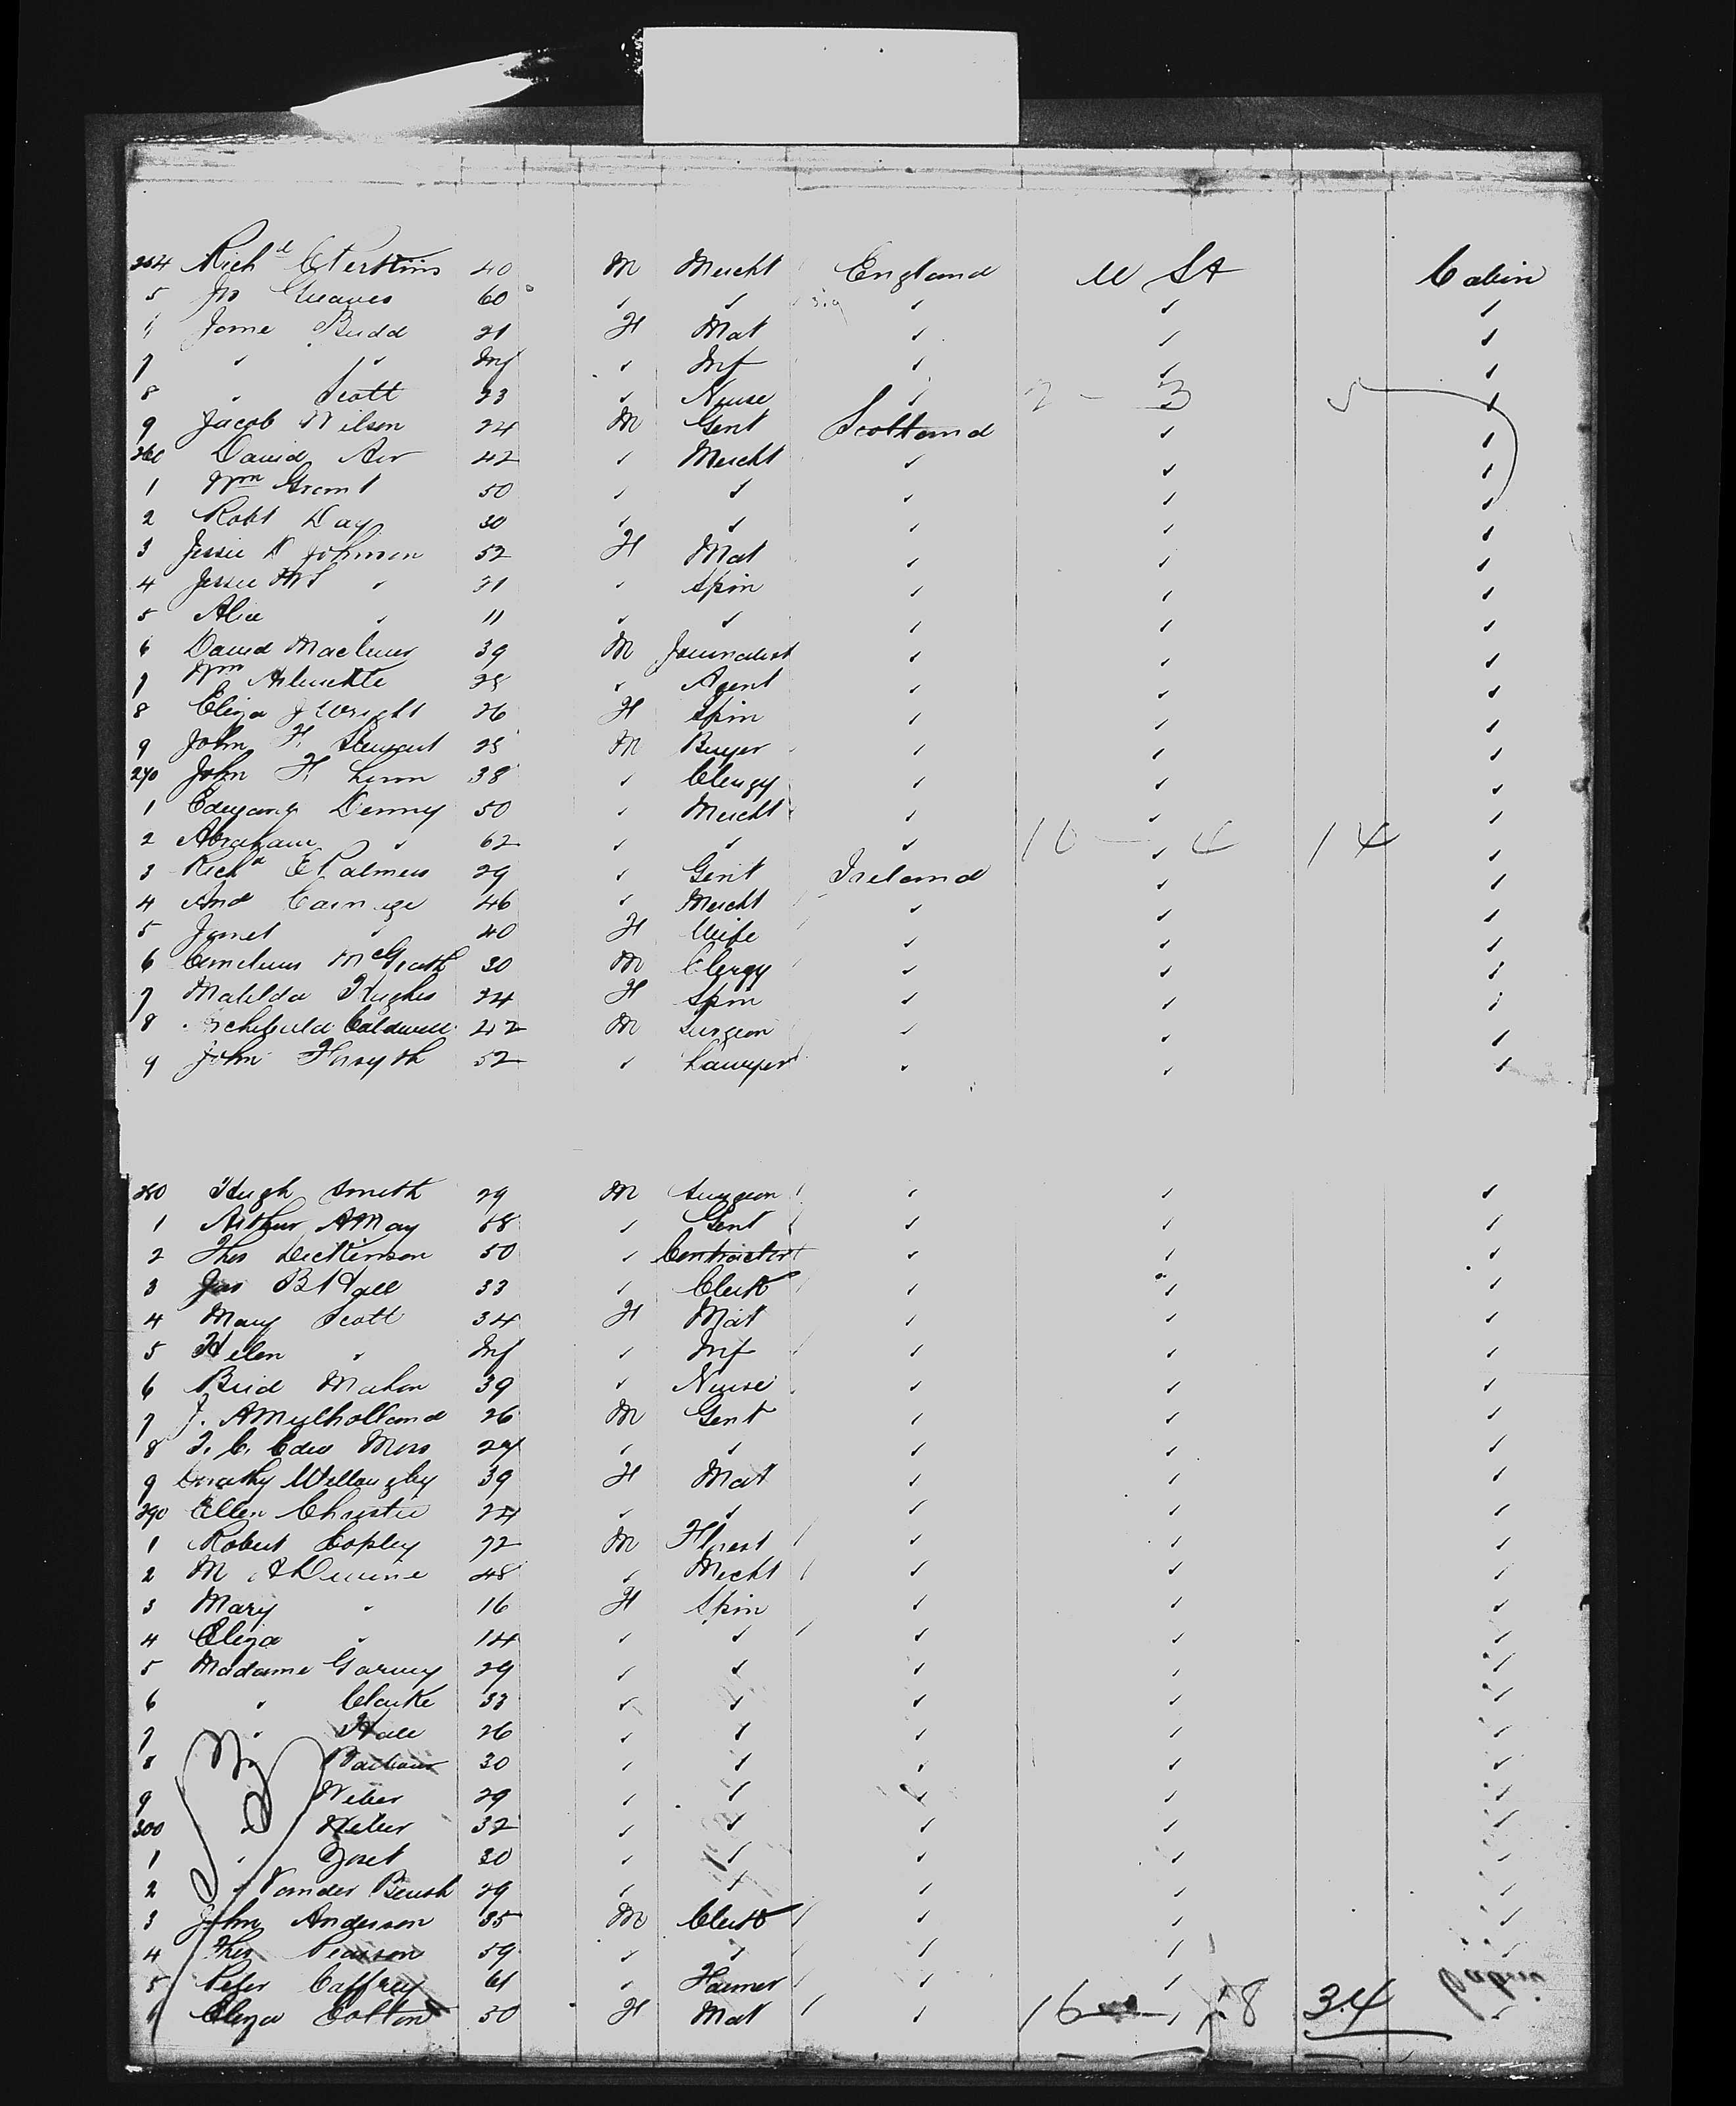 254 Richd C Perkins 40 M Mercht England U St Cabin
5 Jn Greaves 60 " " " " "
6 Jane Budd 21 F Mat " " "
7 " " Inf " Inf " " "
8 " Scott 23 " Nurse " 2 - 3 5 "
9 Jacob Wilson 24 M Gent Scotland " "
260 David Air 42 " Mercht " " "
1 Wm Grant 50 " " " " "
2 Robt Day 30 " " " " "
3 Jessie D Johnson 52 F Mat " " "
4 Jessie " 21 " Spin " " "
5 Alice " 11 " " " " "
6 David 39 M Journalist " " "
7 Wm 28 " Agent " " "
8 Eliza J Wright 26 F Spin " " "
9 John F. Stewart 25 M Buyer " " "
270 John F. Linn 38 " Clergy " " "
1 Denny 50 " Mercht " " "
2 Abraham " 62 " " " 10 - 4 14 "
3 Richd E Palmer 29 " Gent Ireland " "
4 And Carnegie 46 " Mercht " " "
5 Janet " 40 F Wife " " "
6 Cornelius McGrath 30 M Clergy " " "
7 Matilda Hughes 24 F Spin " " "
8 Archibald Caldwell 42 M Surgeon " " "
9 John Forsyth 52 " Lawyer " " "
280 Hugh Smith 29 M Surgeon " " "
1 Arthur A May 58 " Gent " " "
2 Thos Dickinson 50 " Contractor " " "
3 Jas B Hall 33 " Clerk " " "
4 Mary Scott 34 F Mat " " "
5 Helen " Inf " Inf " " "
6 Brid Mahon 39 " Nurse " " "
7 J. A Mulholland 26 M Gent " " "
8 T. C. Edw Moss 27 " " " " "
9 Dorothy Willougby 39 F Mat " " "
290 Ellen Christie 24 " " " " "
1 Robert Copley 22 M " " "
2 M A Devine 48 " Mercht " " "
3 Mary " 16 F Spin " " "
4 Eliza " 14 " " " " "
5 Madame Garvey 29 " " " " "
6 " Clarke 33 " " " " "
7 " Hall 26 " " " " "
8 " 30 " " " " "
9 " Weber 29 " " " " "
300 " 32 " " " " "
1 " 30 " " " " "
2 " Vander Bensh 29 " " " " "
3 John Anderson 35 M Clerk " " "
4 Thos Pearson 59 " " " " "
5 Peter Caffrey 61 " Farmer " " Cabin
6 Eliza Colton 50 F Mat " 16 - 18 34 "